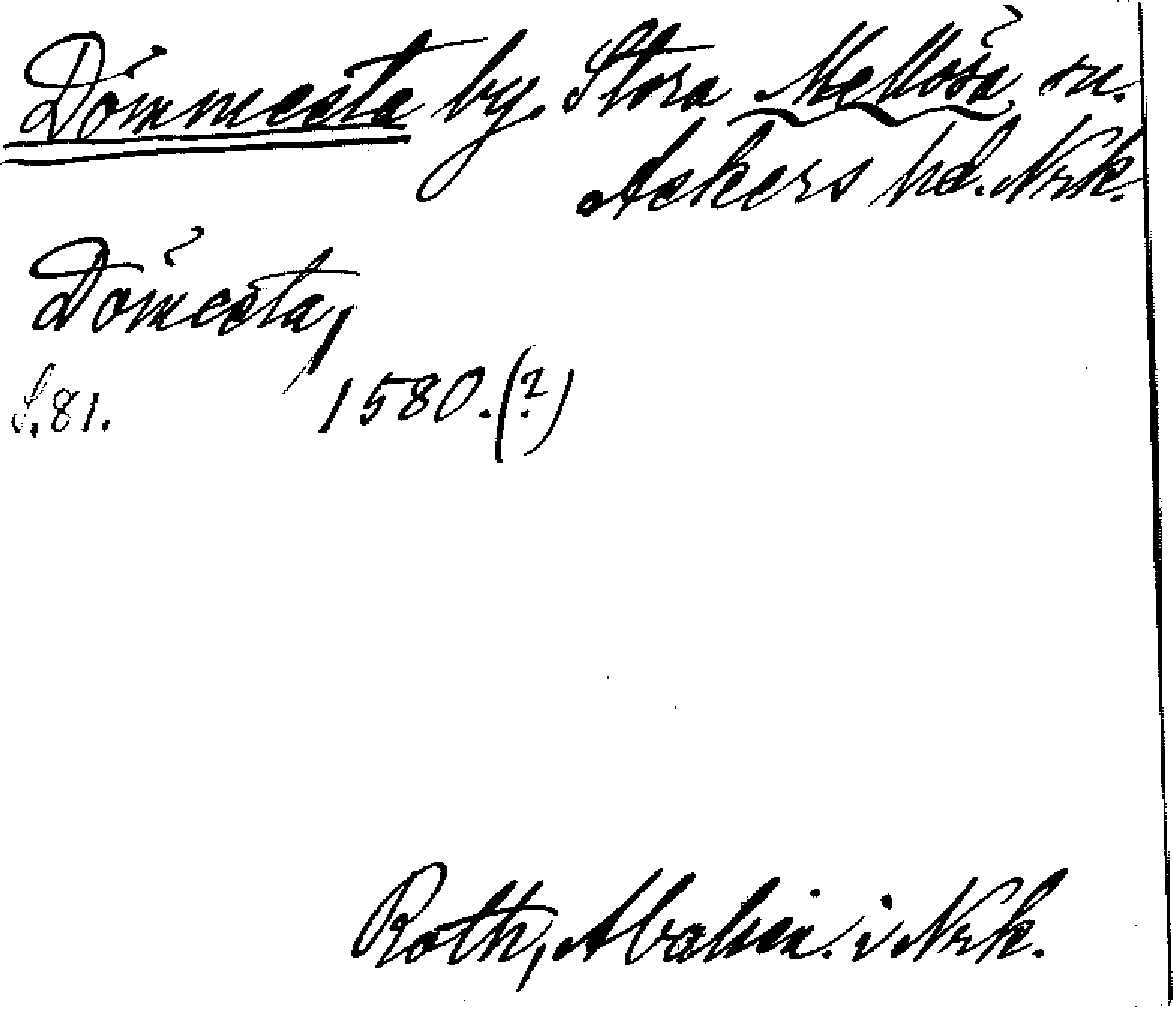 Dömmesta by. Stora Mellösa sn.
Askers hd. Nrk.
Dömesta,
S. 81. 1580. (?)
Roth, i Nrk.